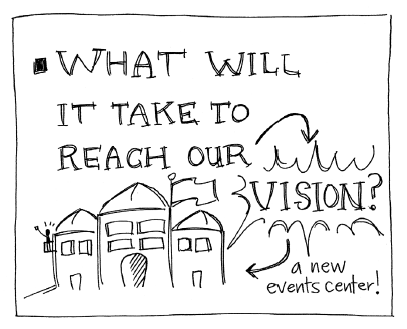 WHAT WILL
IT TAKE TO
REACH OUR
VISION?
a new
events center!